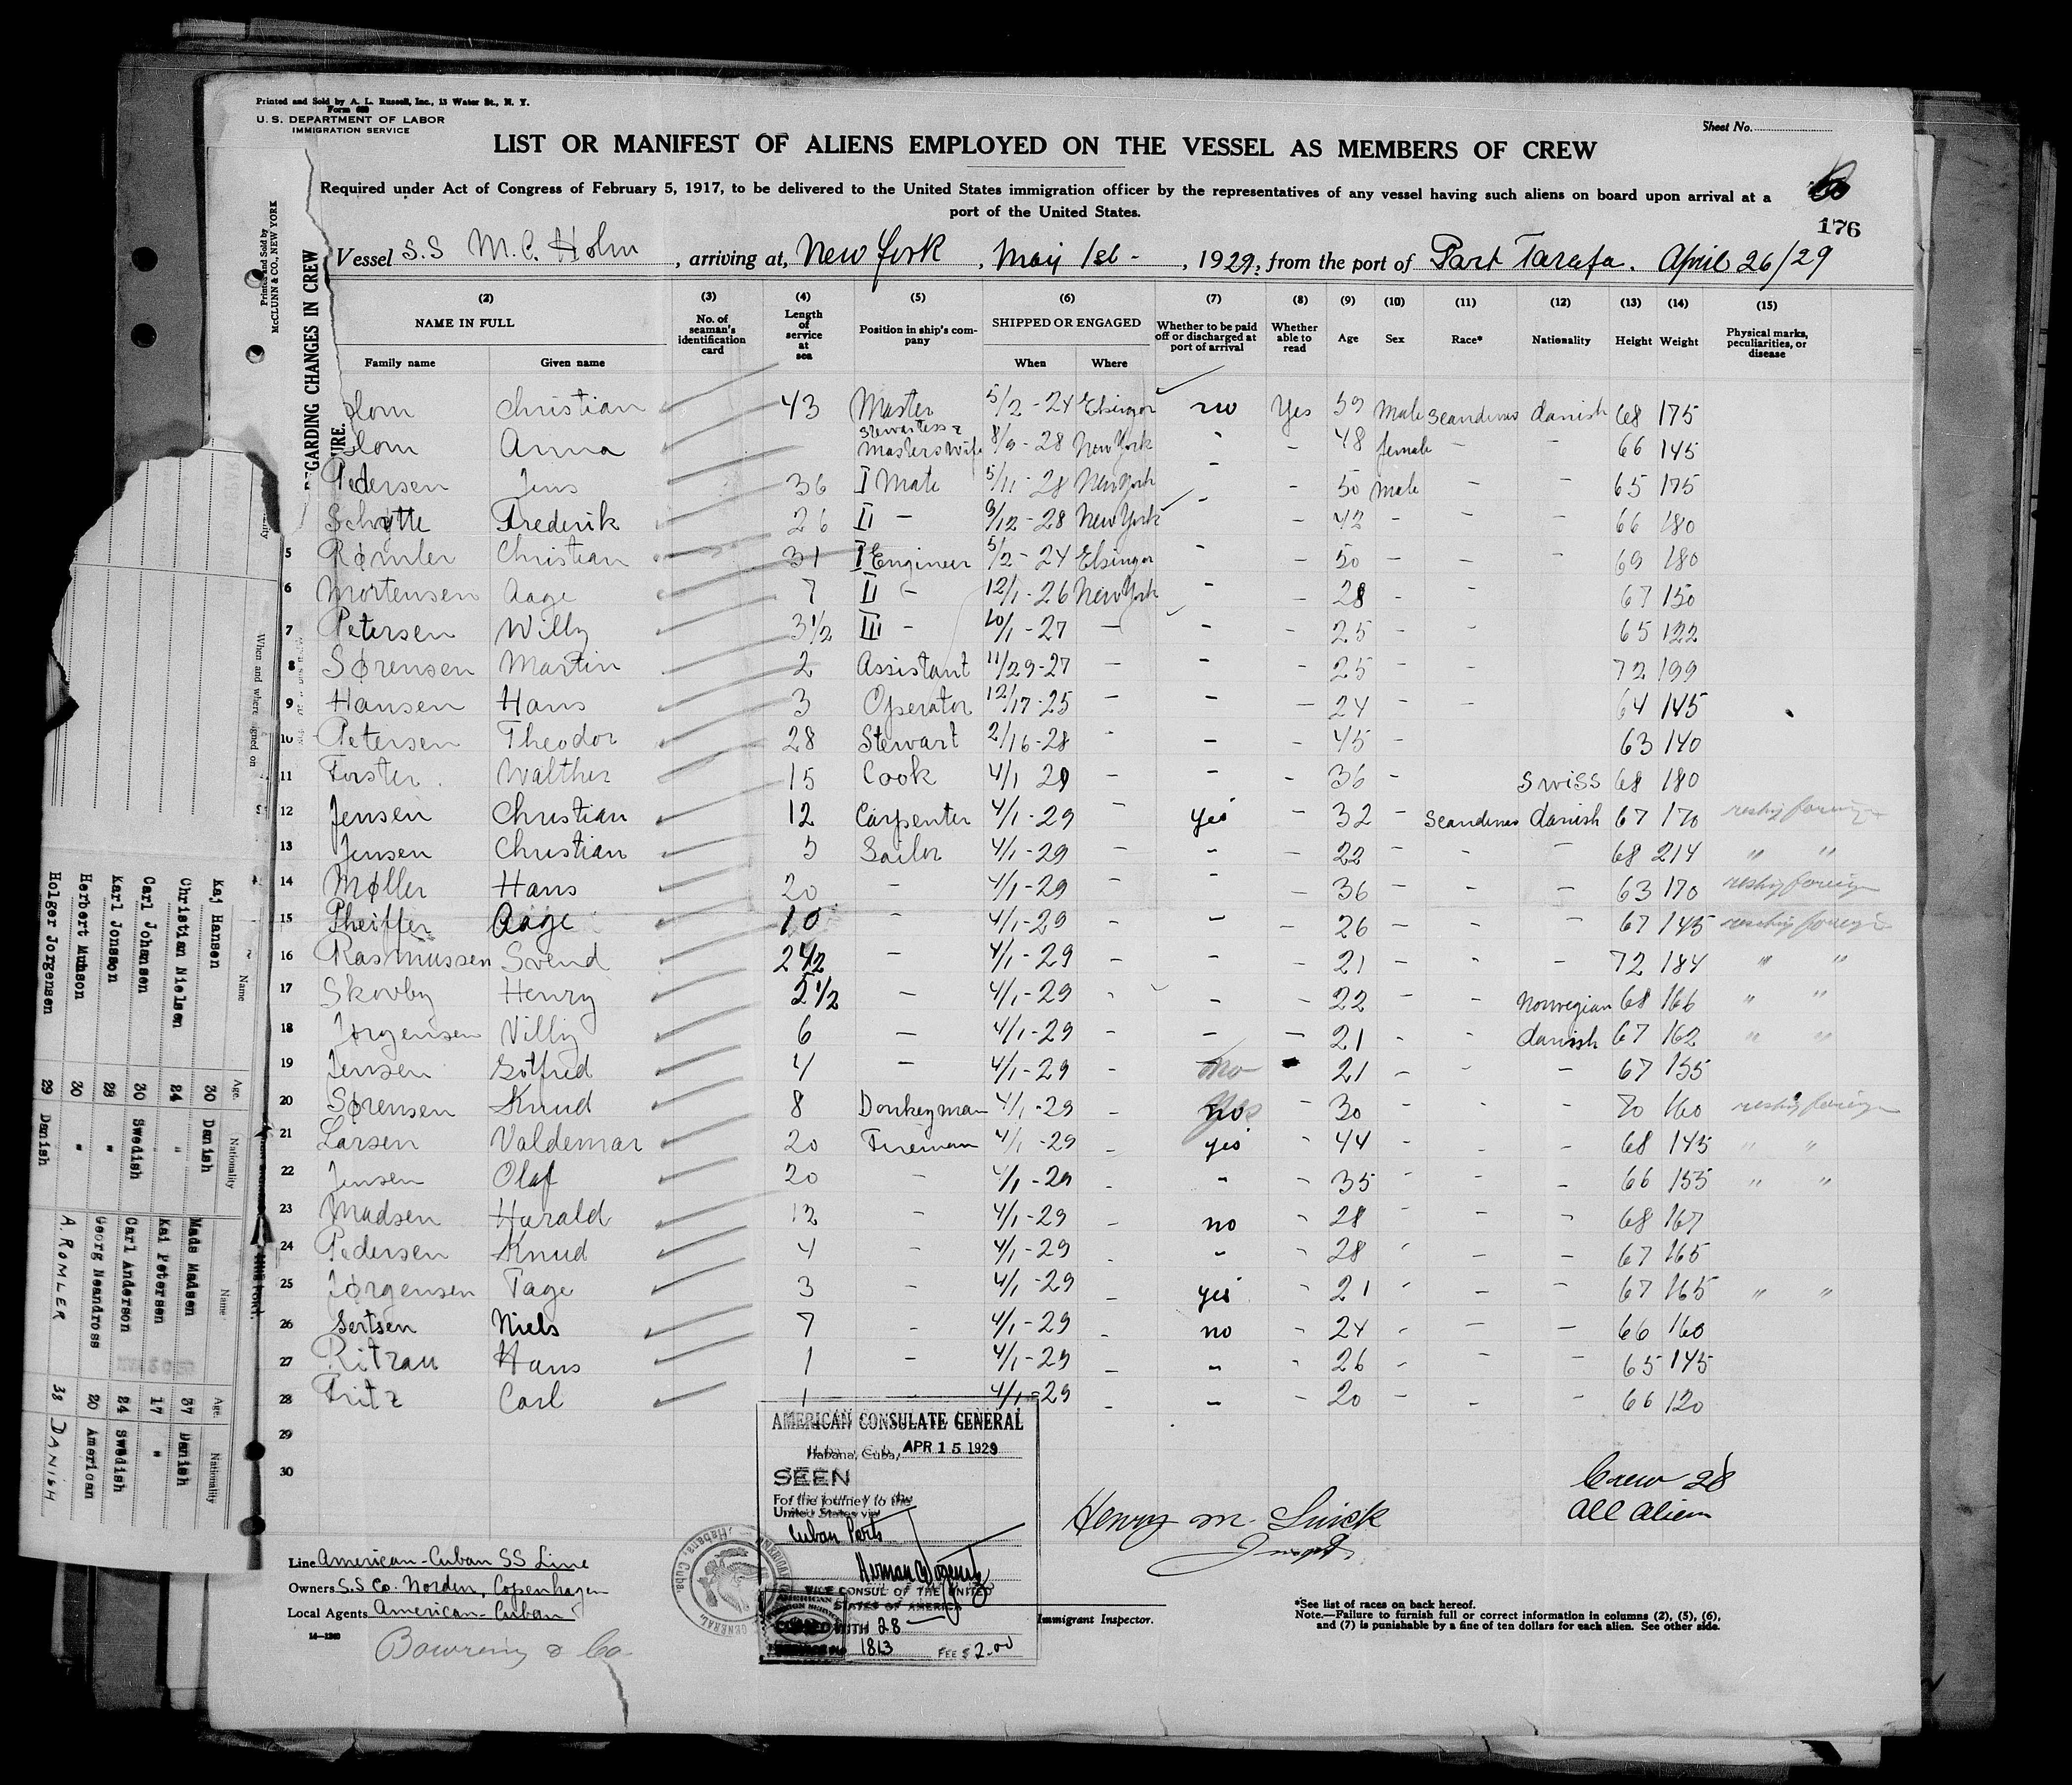 Printed and Sold by A. L. Russell, Inc., 13 Water St., N. Y.
Form 689
U. S. DEPARTMENT OF LABOR
IMMIGRATION SERVICE
Sheet No.
LIST OR MANIFEST OF ALIENS EMPLOYED ON THE VESSEL AS MEMBERS OF CREW
Required under Act of Congress of February 5, 1917, to be delivered to the United States immigration officer by the representatives of any vessel having such aliens on board upon arrival at a
port of the United States.
176
Vessel S.S M.C. Holm, arriving at, New York, May 1st -, 1929, from the port of Port Tarafa. April 26/29
(2) (3) (4) (5) (6) (7) (8) (9) (10) (11) (12) (13) (14) (15)
NAME IN FULL No. of seaman's identification card Length of service at sea Position in ship's company SHIPPED OR ENGAGED Whether to be paid off or discharged at port of arrival Whether able to read Age Sex Race* Nationality Height Weight Physical marks, peculiarities, or disease
Family name Given name When Where
lom Christian 43 Master 5/2 - 24 Elsingor no Yes 59 Male Scandinav danish 68 175
lom Anna Stewartess & Masters Wife 8/9 - 28 New York - - 48 female - - 66 145
Pedersen Jens 36 I Mate 5/11 - 28 New York - - 50 male - - 65 175
Schytte Frederik 26 II - 9/12 - 28 New York - - 42 - - - 66 180
5 Rømler Christian 31 I Engineer 5/2 - 24 Elsingor - - 50 - - - 69 180
6 Mortensen Aage 7 II - 12/1 - 26 New York - - 28 - - 67 150
7 Petersen Willy 3 1/2 III - 10/1 - 27 - - - 25 - - 65 122
8 Sørensen Martin 2 Assistant 11/29-27 - - - 25 - - 72 199
9 Hansen Hans 3 Operator 12/17-25 - - - 24 - - 64 145
10 Petersen Theodor 28 Stewart 2/16-28 - - - 45 - 63 140
11 Forster Walther 15 Cook 4/1 29 - - - 36 - Swiss 68 180
12 Jensen Christian 12 Carpenter 4/1-29 - yes - 32 - Scandinav danish 67 170 reship foreign
13 Jensen Christian 5 Sailor 4/1-29 - - - 22 - - - 68 214 " "
14 Møller Hans 20 - 4/1-29 - - - 36 - - - 63 170 reship foreign
15 Pheiffer Aage 10 - 4/1-29 - - - 26 - - - 67 145 reship foreign
16 Rasmussen Svend 2 1/2 - 4/1-29 - - - 21 - - - 72 184 " "
17 Skovby Henry 5 1/2 - 4/1-29 - - - 22 - - Norwegian 68 166 " "
18 Jørgensen Villy 6 - 4/1-29 - - - 21 - - danish 67 162 " "
19 Jensen Gotfred 4 - 4/1-29 - no - 21 - - - 67 155
20 Sørensen Knud 8 Donkeyman 4/1-29 - no - 30 - - - 70 160 reship foreign
21 Larsen Valdemar 20 Fireman 4/1-29 - yes - 44 - - - 68 145 " "
22 Jensen Olaf 20 - 4/1-29 - - - 35 - - - 66 155 " "
23 Madsen Harald 12 - 4/1-29 - no - 28 - - - 68 167
24 Pedersen Knud 4 - 4/1-29 - - - 28 - - - 67 165
25 Jørgensen Tage 3 - 4/1-29 - yes - 21 - - - 67 165 " "
26 Sertsen Niels 7 - 4/1-29 - no - 24 - - - 66 160
27 Ritzau Hans 1 - 4/1-29 - - - 26 - - - 65 145
28 Fritz Carl 1 4/1-29 - - - 20 - - - 66 120
29
30
AMERICAN CONSULATE GENERAL
Habana, Cuba, APR 15 1929
SEEN
For the journey to the
United States via
Cuban Ports
VICE CONSUL OF THE UNITED
STATES OF AMERICA
WITH 28
1813 FEE $ 2.00
Crew 28
all alien
Henry M.
Immigrant Inspector.
Line American-Cuban SS Line
Owners S.S Co. Norden, Copenhagen
Local Agents American-Cuban
14-1240
Bowring & Co.
*See list of races on back hereof.
Note.—Failure to furnish full or correct information in columns (2), (5), (6),
and (7) is punishable by a fine of ten dollars for each alien. See other side.
Printed and Sold by
McCLUNN & CO., NEW YORK
REGARDING CHANGES IN CREW
When and where signed on
Name Age. Nationality Name Age. Nationality
Kaj Hansen 30 Danish Mads Madsen 37 Danish
Christian Nielsen 24 " Kai Petersen 17 "
Carl Johansen 30 Swedish Carl Anderson 24 Swedish
Karl Jonsson 28 " Georg Neandross 20 American
Herbert Muhson 30 " A. ROMLER 38 DANISH
Holger Jorgensen 29 Danish